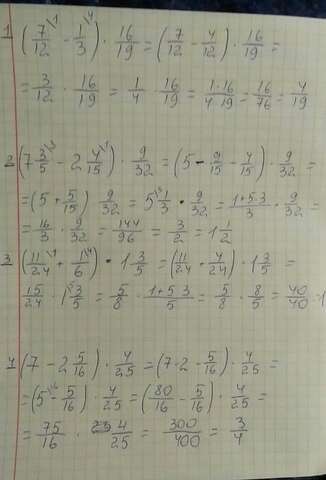 1 (7/12 \1 - 1/3 \4) · 16/19 = (7/12 - 4/12) · 16/19 =
= 3/12 · 16/19 = 1/4 · 16/19 = 1·16/4·19 = 16/76 = 4/19
2 (7 3/5 \3 - 2 4/15 \1) · 9/32 = (5 - 9/15 - 4/15) · 9/32 =
= (5 + 5/15) 9/32 = 5 1/3 · 9/32 = 1+5·3/3 · 9/32 =
= 16/3 · 9/32 = 144/96 = 3/2 = 1 1/2
3 (11/24 \1 + 1/6 \4) · 1 3/5 = (11/24 + 4/24) · 1 3/5 =
15/24 · 1 3/5 = 5/8 · 1+5 3/5 = 5/8 · 8/5 = 40/40 · 1
4 (7 - 2 5/16) · 4/25 = (7-2 - 5/16) · 4/25 =
= (5 \16 - 5/16) · 4/25 = (80/16 - 5/16) · 4/25 =
= 75/16 · 4/25 = 300/400 = 3/4